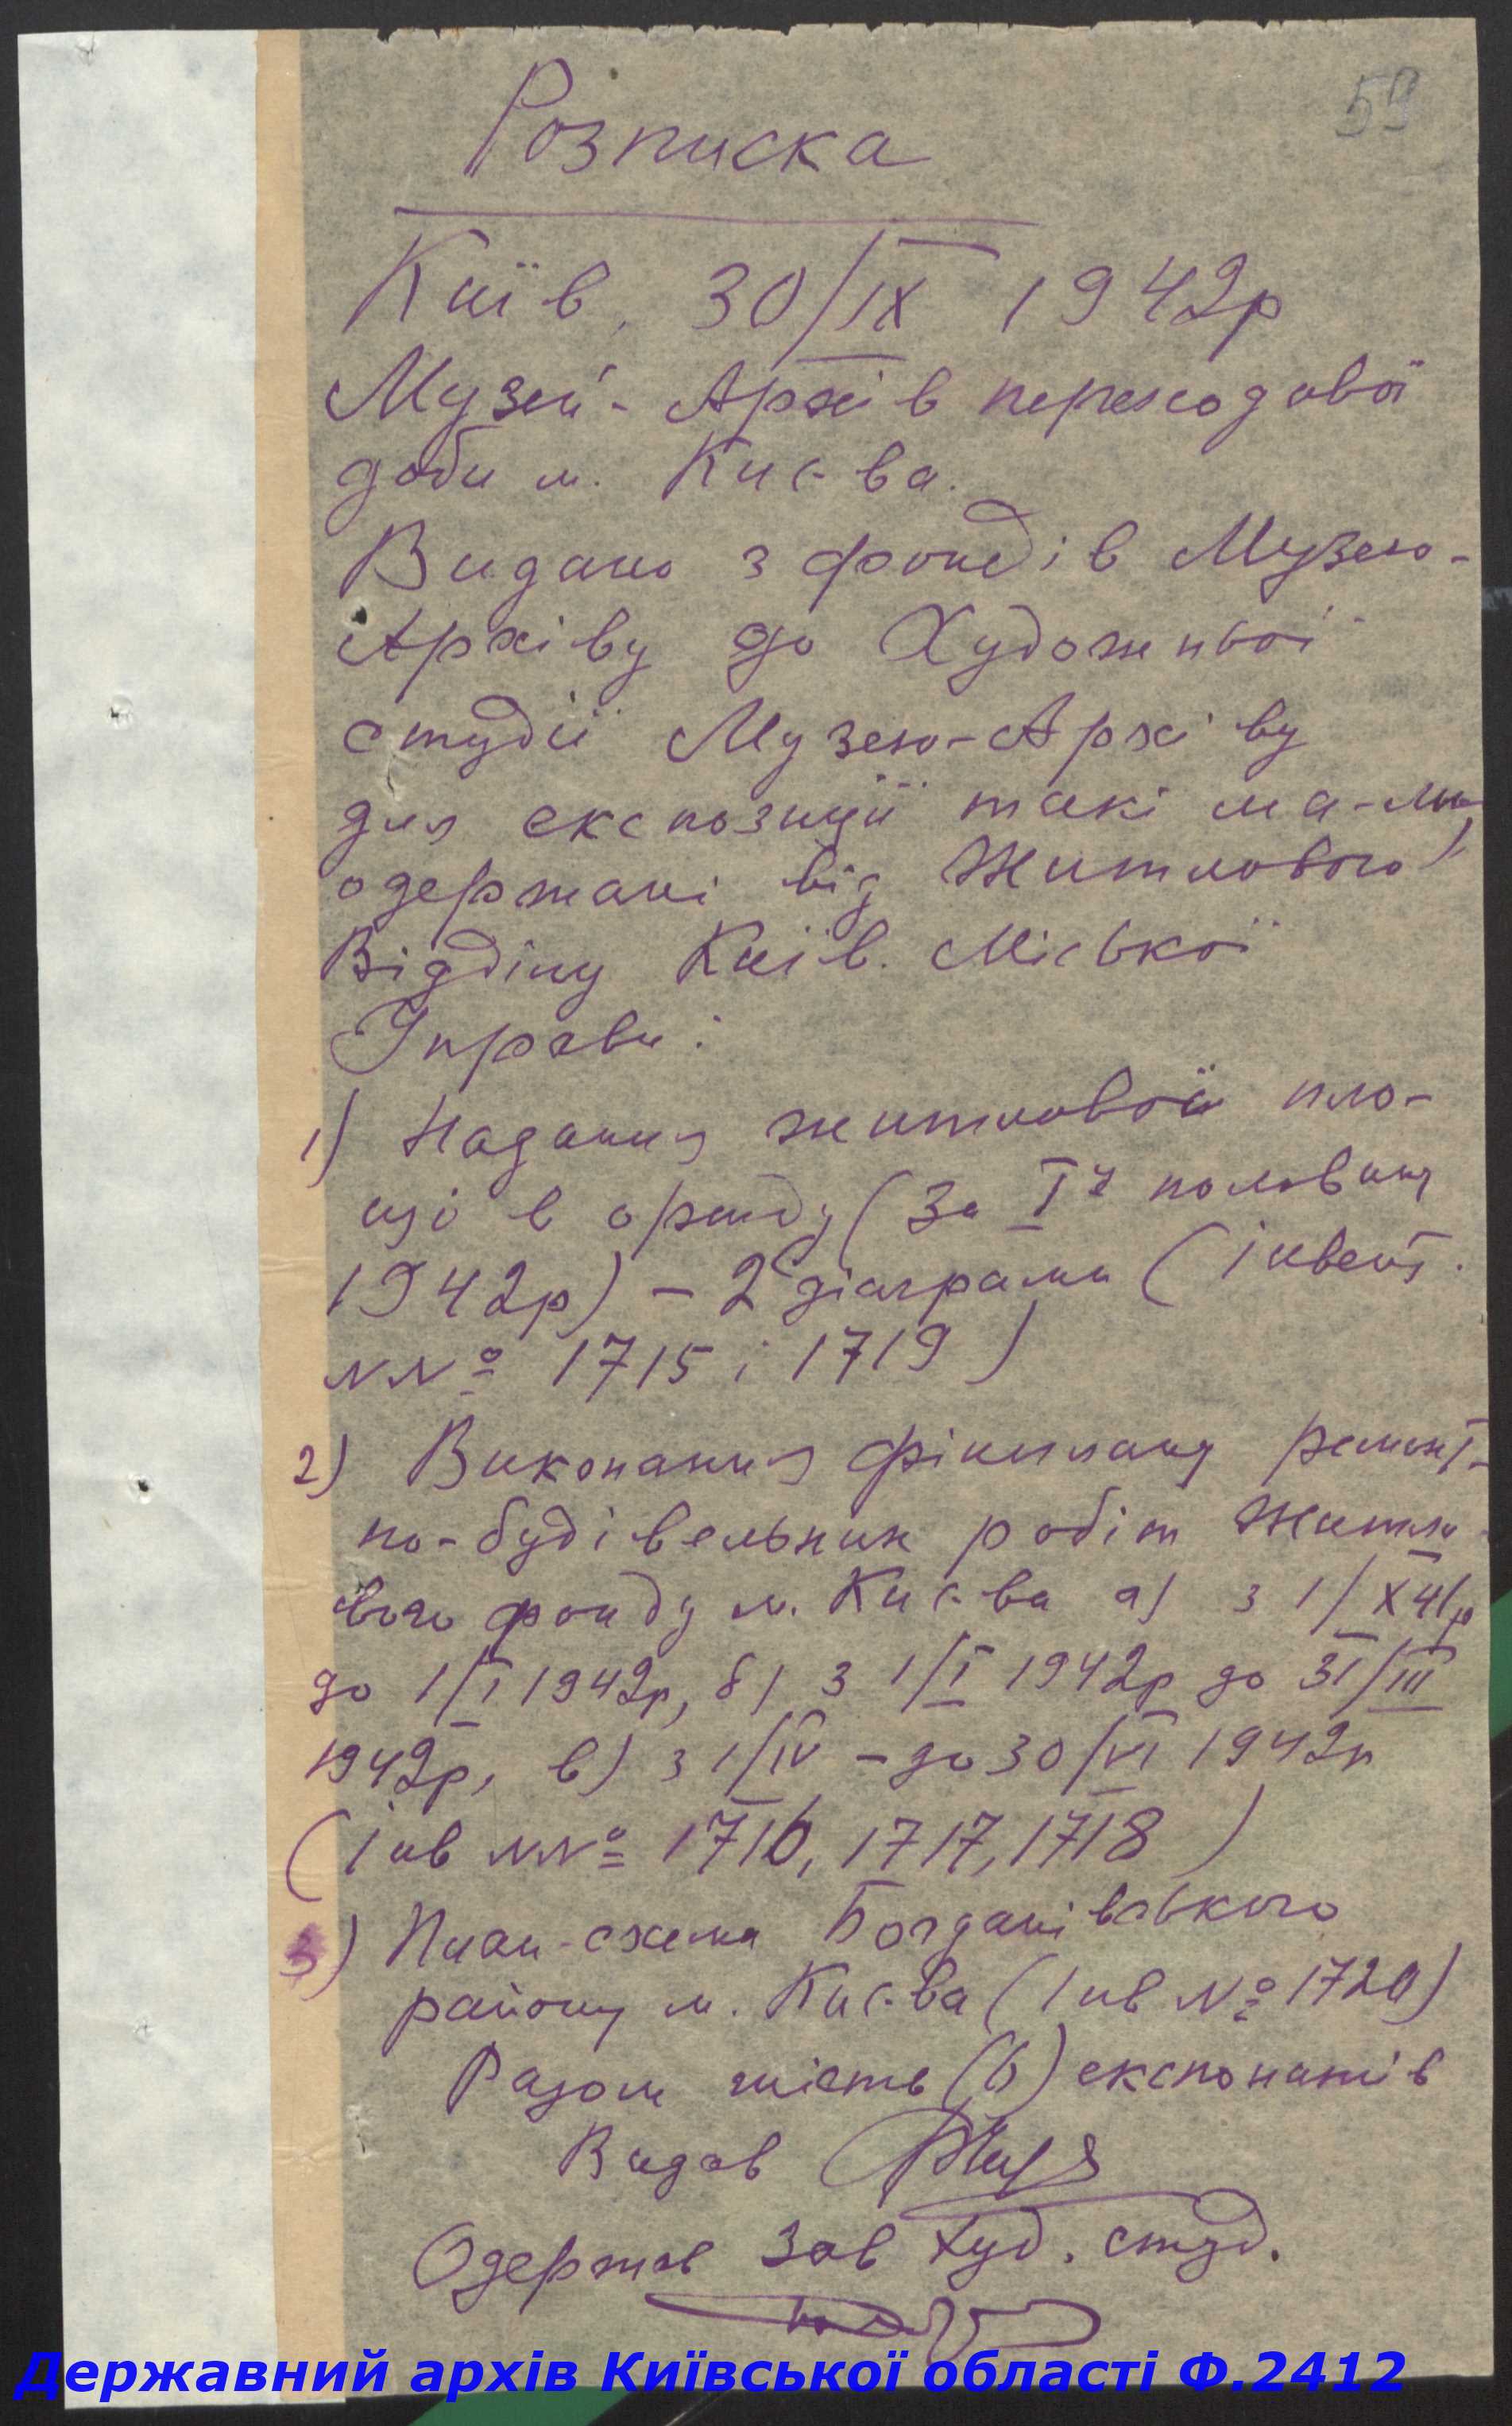 59
Розписка
Київ, 30/IX 1942р
Музей-Архів переходової
доби м. Києва.
Видано з фондів Музею-
Архіву до Художньої
студії Музею-Архіву
для експозиції такі ма-ли,
одержані від Житлового
Відділу Київ. Міської
Управи:
1) Надання житлової пло-
щі в оренду (За I у половину
1942р) – 2 діаграми (інвент.
NNº 1715 і 1719)
2) Виконання фінплану ремонт-
но-будівельних робіт житло-
вого фонду м. Києва а) з 1/X 41р
до 1/I 1942р, б) з 1/I 1942р до 31/III
1942р, в) з 1/IV – до 30/VI 1942р
(інв NNº 1716, 1717, 1718)
3) План-схема Богданівського
району м. Києва (інв Nº 1720)
Разом шість (6) експонатів
Видав
Одержав Зав худ. студ.
Державний архів Київської області Ф.2412